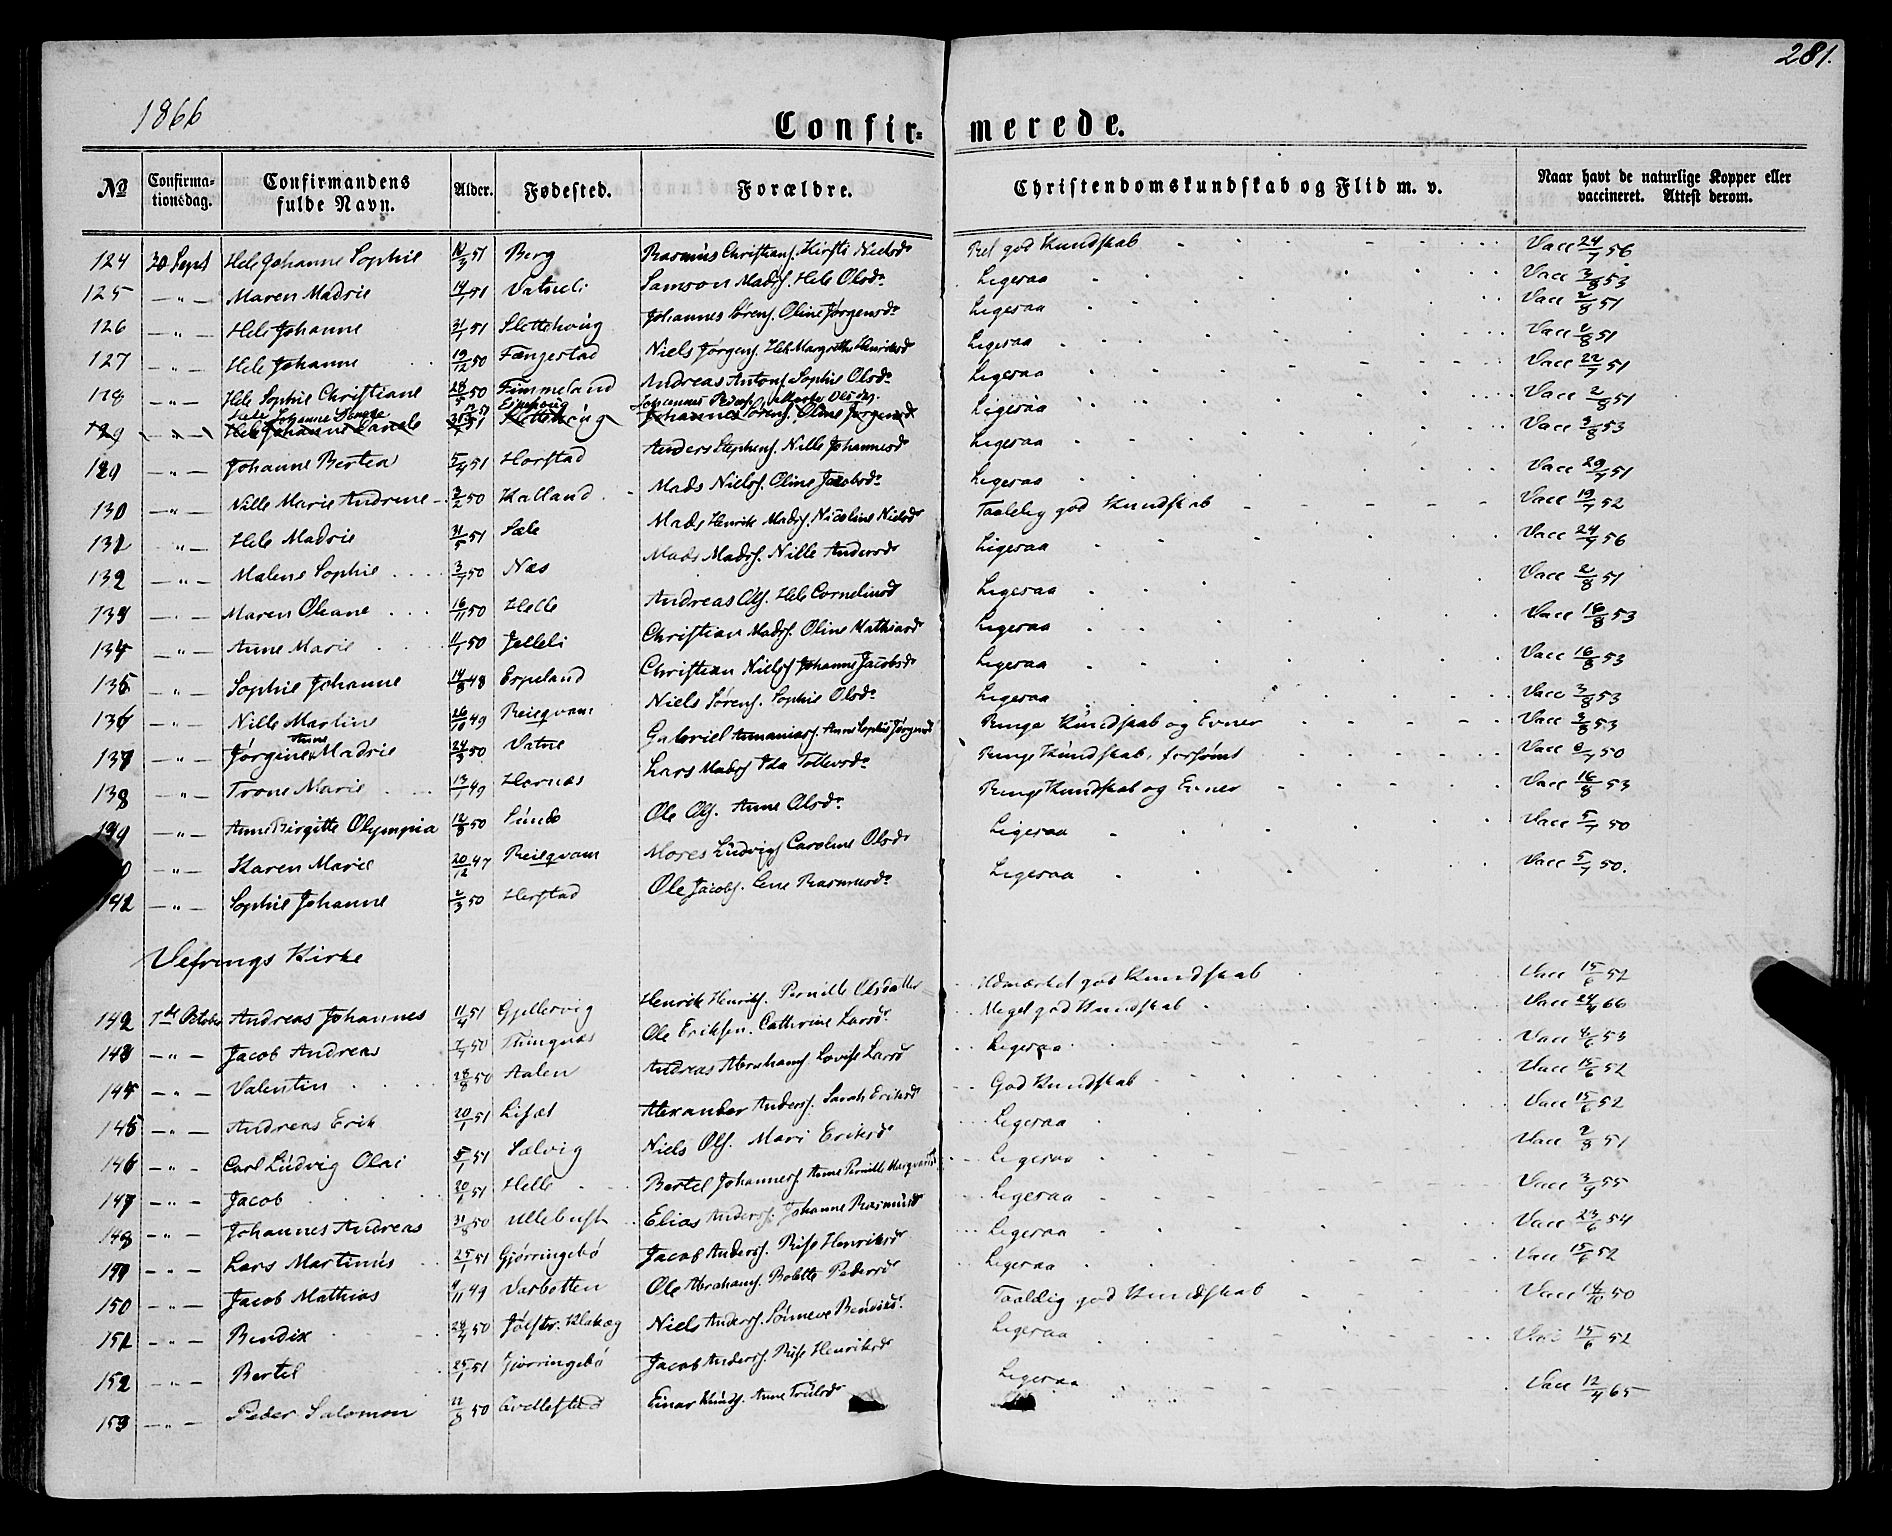 281.
1866
Confir= merede.
No Confirmationsdag. Confirmandens fulde Navn. Alder. Fødested. Forældre. Christendomskundskab og Flid m. v. Naar havt de naturlige Kopper eller vaccineret. Attest derom.
124 30 Sept Hele Johanne Sophie 51 Berg Rasmus Christians. Kirsti Nielsdr Ret god Kundskab Vacc 24/7 56
125 — " — Maren Madrie 14/1 51 Vatneli Samson Mads. Hele Olsdr Ligesaa Vacc 3/8 53
126 — " — Hele Johanne 31/1 51 Slettehoug Johannes Sørens. Oline Jørgensdr Ligesaa Vacc 2/8 51
127 — " — Hele Johanne 19/12 50 Fængestad Niels Jørgens. Hele Margrethe Henriksdr Ligesaa Vacc 2/8 51
128 — " — Hele Sophie Christiane 28/5 50 Fimmeland Andreas Antons. Sophie Olsdr Ligesaa Vacc 22/7 51
129 — " — Hele Johanne 51 Slettehoug Johannes Sørens. Oline Jørgensdr Ligesaa Vacc 2/8 51
— " — Johanne Bertea 5/4 51 Horstad Anders Stephens. Nille Johannesdr Ligesaa Vacc 3/8 53
130 — " — Nille Marie Andrine 3/2 50 Kalland Mads Niels. Oline Jacobsdr Ligesaa Vacc 29/7 51
131 — " — Hele Madrie 31/5 51 Sæle Mads Henrik Mads. Nicoline Nielsdr Taalelig god Kundskab Vacc 19/7 52
132 — " — Malene Sophie 3/7 50 Næs Mads Mads. Nille Andersdr Ligesaa Vacc 24/7 56
133 — " — Maren Oleane 16/11 50 Helle Andreas Ols. Hele Corneliusdr Ligesaa Vacc 2/8 51
134 — " — Anne Marie 50 Jelleli Christian Mads. Oline Mathiasdr Ligesaa Vacc 16/8 53
135 — " — Sophie Johanne 14/8 48 Espeland Christian Niels. Johanne Jacobsdr Ligesaa Vacc 16/8 53
136 — " — Nille Martine 49 Reiseqvam Niels Sørens. Sophie Olsdr Ligesaa Vacc 3/8 53
137 — " — Jørgine Anne Madrie 24/3 50 Vatne Gabriel Annanias. Anne Sophie Jørgensdr Ringe Kundskab og Evner Vacc 3/8 53
138 — " — Trone Marie 13/1 49 Hornæs Lars Mads. Ida Tollevsdr Ringe Kundskab, forsømt Vacc 50
139 — " — Anne Birgitte Olympia 12/8 50 Sunde Ole Ols. Anne Olsdr Ringe Kundskab og Evner Vacc 16/8 53
— " — Karen Marie 20/12 47 Reiseqvam Mores Ludvigs. Caroline Olsdr Ligesaa Vacc 5/7 50
141 — " — Sophie Johanne 2/3 50 Herstad Ole Jacobs. Lene Rasmusdr Ligesaa Vacc 5/7 50.
Vefrings Kirke
142 7de October Andreas Johannes 11/4 51 Gjellervig Henrik Henriks. Pernille Olsdatter Udmærket god Kundskab Vacc 15/6 52
143 — " — Jacob Andreas 50 Ole Eriksen. Cathrine Larsdr Meget god Kundskab Vacc 24/4 66
144 — " — Valentin 28/8 50 Aalen Andreas Abrahams. Lovise Larsdr Ligesaa Vacc 4/6 53
145 — " — Andreas Erik 20/1 51 Liset Alexander Anders. Sarah Eriksdr God Kundskab Vacc 15/6 52
146 — " — Carl Ludvig Olai 5/1 51 Solvig Niels Ols. Mari Eriksdr Ligesaa Vacc 15/6 52
147 — " — Jacob 20/1 51 Helle Bertel Johannes. Anne Pernille Ligesaa Vacc 2/8 51
148 — " — Johannes Andreas 31/8 50 Ullebust Elias Anders. Johanne Rasmusdr Ligesaa Vacc 3/9 55
149 — " — Lars Martinus 25/1 51 Gjørringebø Jacob Anders. Rise Henriksdr Ligesaa Vacc 23/6 54
150 — " — Jacob Mathias 49 Vasbotten Ole Abrahams. Bolette Pedersdr Ligesaa Vacc 15/6 52
151 — " — Bendix 28/4 50 Jølster. Klakeg Niels Anders. Sønneve Bendiksdr Taalelig god Kundskab Vacc 50
152 — " — Bertel 25/1 51 Gjørringebø Jacob Anders. Rise Henriksdr Ligesaa Vacc 15/6 52
153 — " — Peder Salomon 50 Grellestad Einar Knuds. Anne Trulsdr Ligesaa Vacc 12/4 65